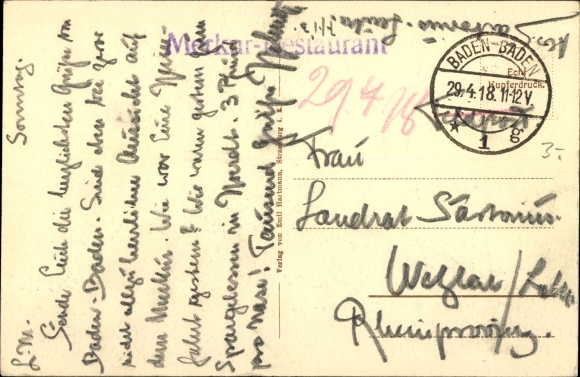 Sonntag.
L. M.
Sende Euch die herzlichsten Grüße von
Baden-Baden. Sind eben bei zwar
nicht allzu herrlicher Aussicht auf
dem Merkur. Wie war Eure
fahrt gestern? Wir waren gestern beim
Spargelessen in 3
pro Nase! Tausend Grüße
Merkur-Restaurant
29.4.18
BADEN-BADEN
29.4.18.11-12V.
* 1 g
Echt
Kupferdruck.
3-
Verlag von Emil Hartmann, Strassburg i. E.
Frau
Landrat Sartorius.
Wetzlar/Lahn
Rheinprovinz.